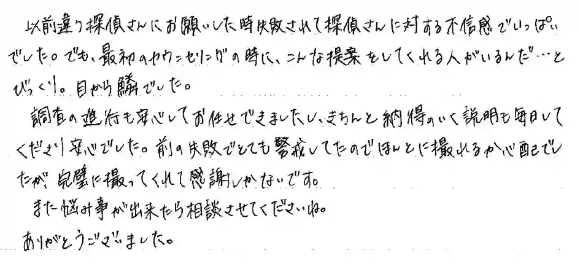 以前違う探偵さんにお願いした時失敗されて探偵さんに対する不信感でいっぱい
でした。でも、最初のカウンセリングの時に、こんな提案をしてくれる人がいるんだ…と
びっくり。目から鱗でした。
調査の進行も安心してお任せできましたし、きちんと納得のいく説明も毎日して
くださり安心でした。前の失敗でとても警戒してたのでほんとに撮れるか心配でし
たが、完璧に撮ってくれて感謝しかないです。
また悩み事が出来たら相談させてくださいね。
ありがとうございました。